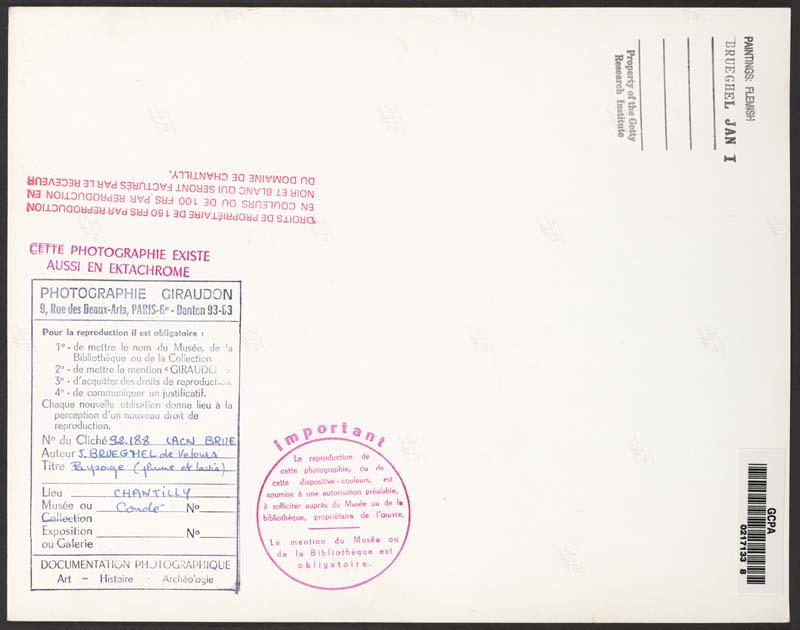 PAINTINGS: FLEMISH
BRUEGHEL JAN I
Property of the Getty
Research Institute
DROITS DE PROPRIÉTAIRE DE 150 FRS PAR REPRODUCTION
EN COULEURS OU DE 100 FRS PAR REPRODUCTION EN
NOIR ET BLANC QUI SERONT FACTURÉS PAR LE RECEVEUR
DU DOMAINE DE CHANTILLY.
CETTE PHOTOGRAPHIE EXISTE
AUSSI EN EKTACHROME
PHOTOGRAPHIE GIRAUDON
9, Rue des Beaux-Arts, PARIS-6e - Danton 93-83
Pour la reproduction il est obligatoire :
1° - de mettre le nom du Musée, de la
Bibliothèque ou de la Collection
2° - de mettre la mention « GIRAUDO
3° - d'acquitter des droits de reproduct
4° - de communiquer un justificatif.
Chaque nouvelle utilisation donne lieu à la
perception d'un nouveau droit de
reproduction.
N° du Cliché 92.188 LACN BRUE
Auteur J. BRUEGHEL de Velours
Titre Paysage (plume et lavis)
Lieu CHANTILLY
Musée ou Condé N°
Collection
Exposition N°
ou Galerie
DOCUMENTATION PHOTOGRAPHIQUE
Art - Histoire - Archéologie
important
La reproduction de
cette photographie, ou de
cette diapositive-couleurs, est
soumise à une autorisation préalable,
à solliciter auprès du Musée ou de la
bibliothèque, propriétaire de l'œuvre.
La mention du Musée ou
de la Bibliothèque est
obligatoire.
GCPA
0217133 8